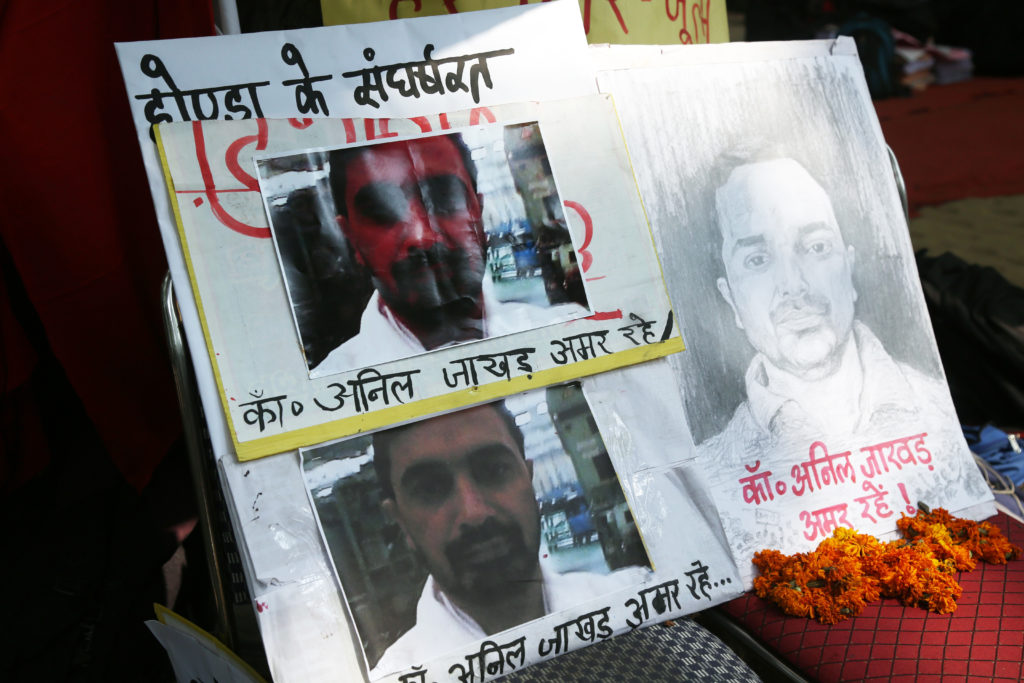 होण्डा के संघर्षरत
कॉ॰ अनिल जाखड़ अमर रहे!
कॉ॰ अनिल जाखड़ अमर रहे...
कॉ॰ अनिल जाखड़
अमर रहें !